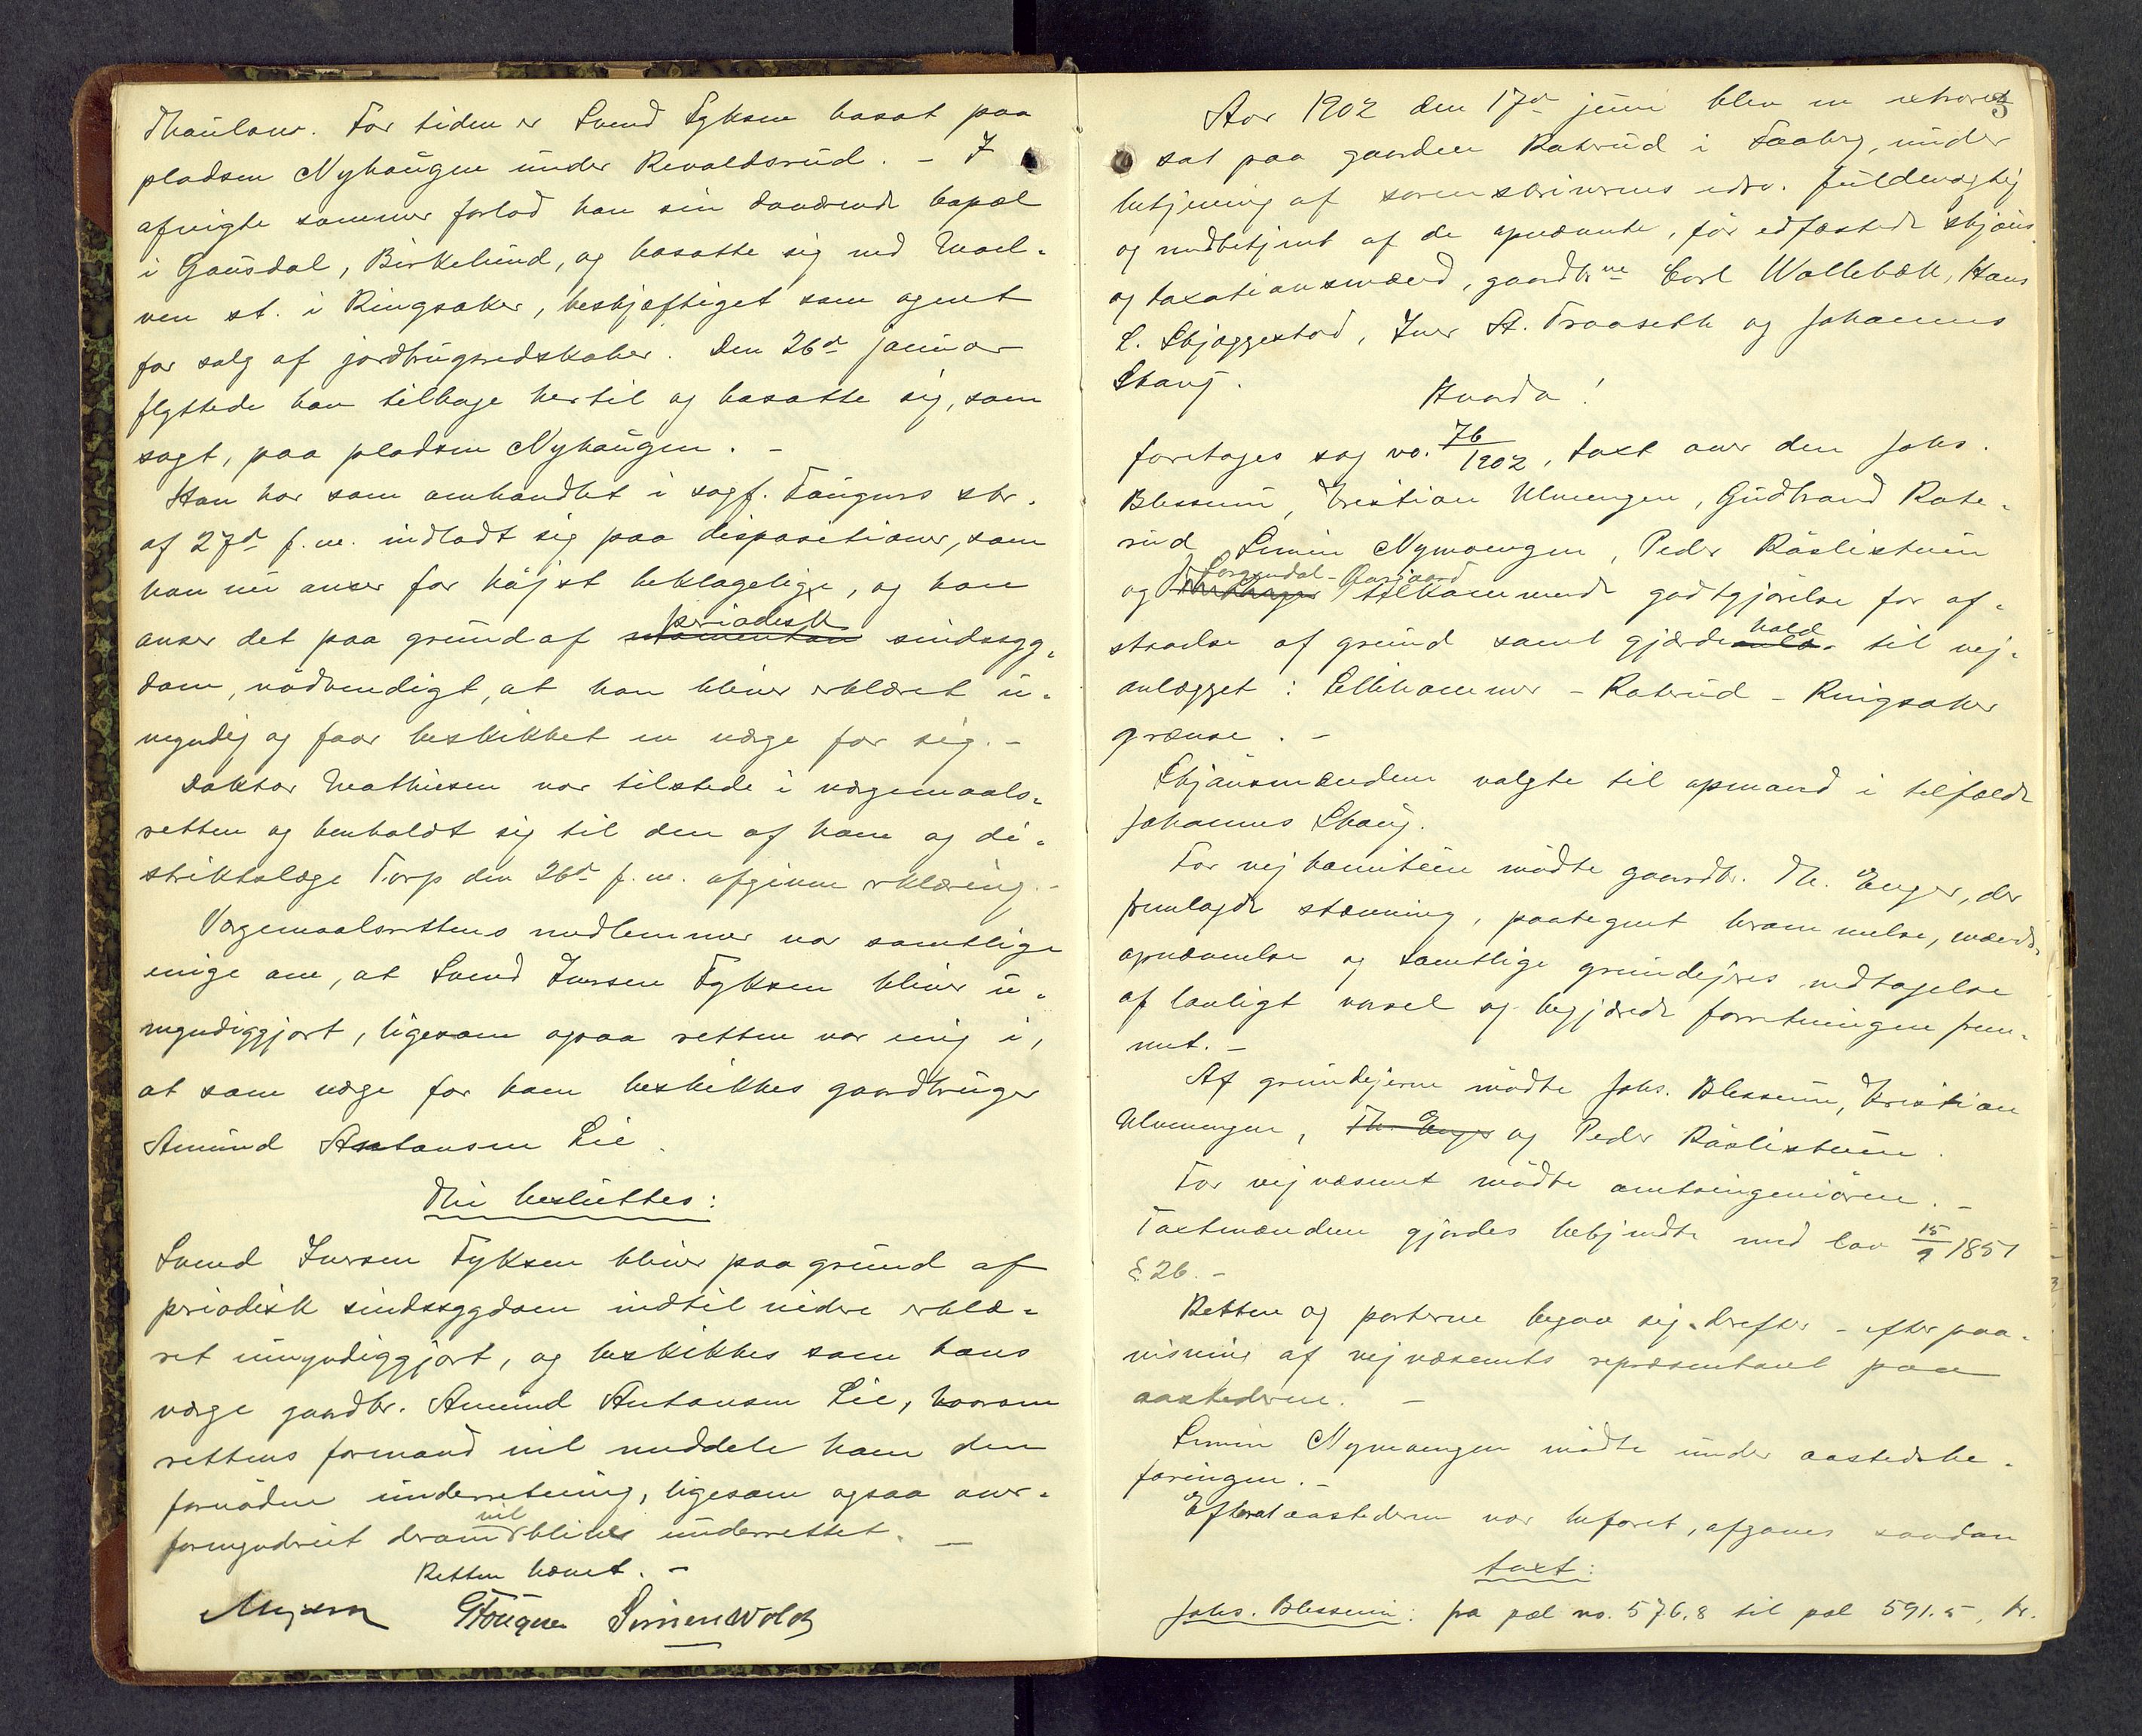 Thaulow. For tiden er Svend Fyksen bosat paa
pladsen Nyhaugen under Revaldsrud. – I
afvigte sommer forlod han sin daværende bopæl
i Gausdal, Birkelund, og bosatte sig ved Moel-
ven st. i Ringsaker, beskjæftiget som agent
for salg af jordbrugsredskaber. Den 26de januar
flyttede han tilbage hertil og bosatte sig, som
sagt, paa pladsen Nyhaugen. –
Han har som omhandlet i sagf. Faugners skr.
af 27de f. m. indladt sig paa dispositioner, som
han nu anser for høist beklagelige, og han
anser det paa grund af momentan periodisk sindssyg-
dom, nødvendigt, at han bliver erklæret u-
myndig og faar beskikket en værge for sig. –
Doktor Mathiesen var tilstede i værgemaals-
retten og henholdt sig til den af ham og di-
striktslæge Torp den 26de f. m. afgivne erklæring. –
Værgemaalsrettens medlemmer var samtlige
enige om, at Svend Iversen Fyksen bliver u-
myndiggjort, ligesom ogsaa retten var enig i,
at som værge for ham beskikkes gaardbruger
Amund Antonsen Lie.
Thi besluttes:
Svend Iversen Fyksen bliver paa grund af
periodisk sindssygdom indtil videre erklæ-
ret umyndiggjort, og beskikkes som hans
værge gaardbr. Amund Antonsen Lie, hvorom
rettens formand vil meddele ham den
fornødne underretning, ligesom ogsaa over-
formynderiet derom vil blive underrettet. –
Retten hævet. –
GFougner Simen Wold
3
Aar 1902 den 17de juni blev en extraret
sat paa gaarden Roterud i Faaberg, under
betjening af sorenskriverens edsv. fuldmægtig
og medbetjent af de opnævnte, før edfæstede skjøns-
og taxationsmænd, gaardbrne Carl Wollebæk, Hans
L. Skjæggestad, Iver A. Traaseth og Johannes
Skaug.
Hvorda!
foretages sag no. 76/1902, taxt over den Johs.
Blessum, Kristian Ulvengen, Gudbrand Rote-
rud, Simen Nymoengen, Peder Raaslistuen
og Jørgendal-Aasgaard tilkommende godtgjørelse for af-
staaelse af grund samt gjærdehold til vej-
anlægget: Lillehammer – Roterud – Ringsaker
grænse. –
Skjønsmændene valgte til opmand i tilfælde
Johannes Skaug.
For vejkomitéen mødte gaardbr. Th. Enger, der
fremlagde stævning, paategnet berammelse, mænds-
opnævnelse og samtlige grundejeres vedtagelse
af lovligt varsel og begjærede forretningen frem-
met. –
Af grundejerne mødte Johs. Blessum, Kristian
Ulvengen, Th. Enger og Peder Raaslistuen.
For vejvæsenet mødte amtsingeniøren. –
Taxtmændene gjordes bekjendte med lov 15/9 1851
§ 26. –
Retten og parterne begav sig derefter – efter paa-
visning af vejvæsenets repræsentant paa
aastederne. –
Simen Nymoengen mødte under aastedsbe-
faringen. –
Efterat aastederne var befaret, afgaves saadan
taxt:
Johs. Blessum: fra pæl no. 576.8 til pæl 591.5, kr.